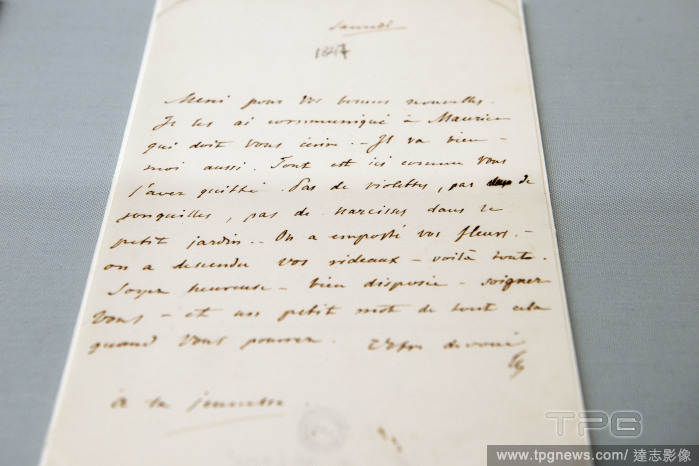 Samedi
1847
Merci pour vos bonnes nouvelles.
Je les ai communiqué à Maurice
qui doit vous écrire. - Il va bien -
moi aussi. Tout est ici comme vous
l'avez quitté. Pas de violettes, pas de
jonquilles, pas de narcisses dans le
petit jardin.. On a emporté vos fleurs. -
on a descendu vos rideaux - voilà tout.
Soyez heureuse - bien disposée - soignez
vous - et un petit mot de tout cela
quand vous pourrez. Votre dévoué
Ch
à la jeunesse
TPG
www.tpgnews.com/ 達志影像